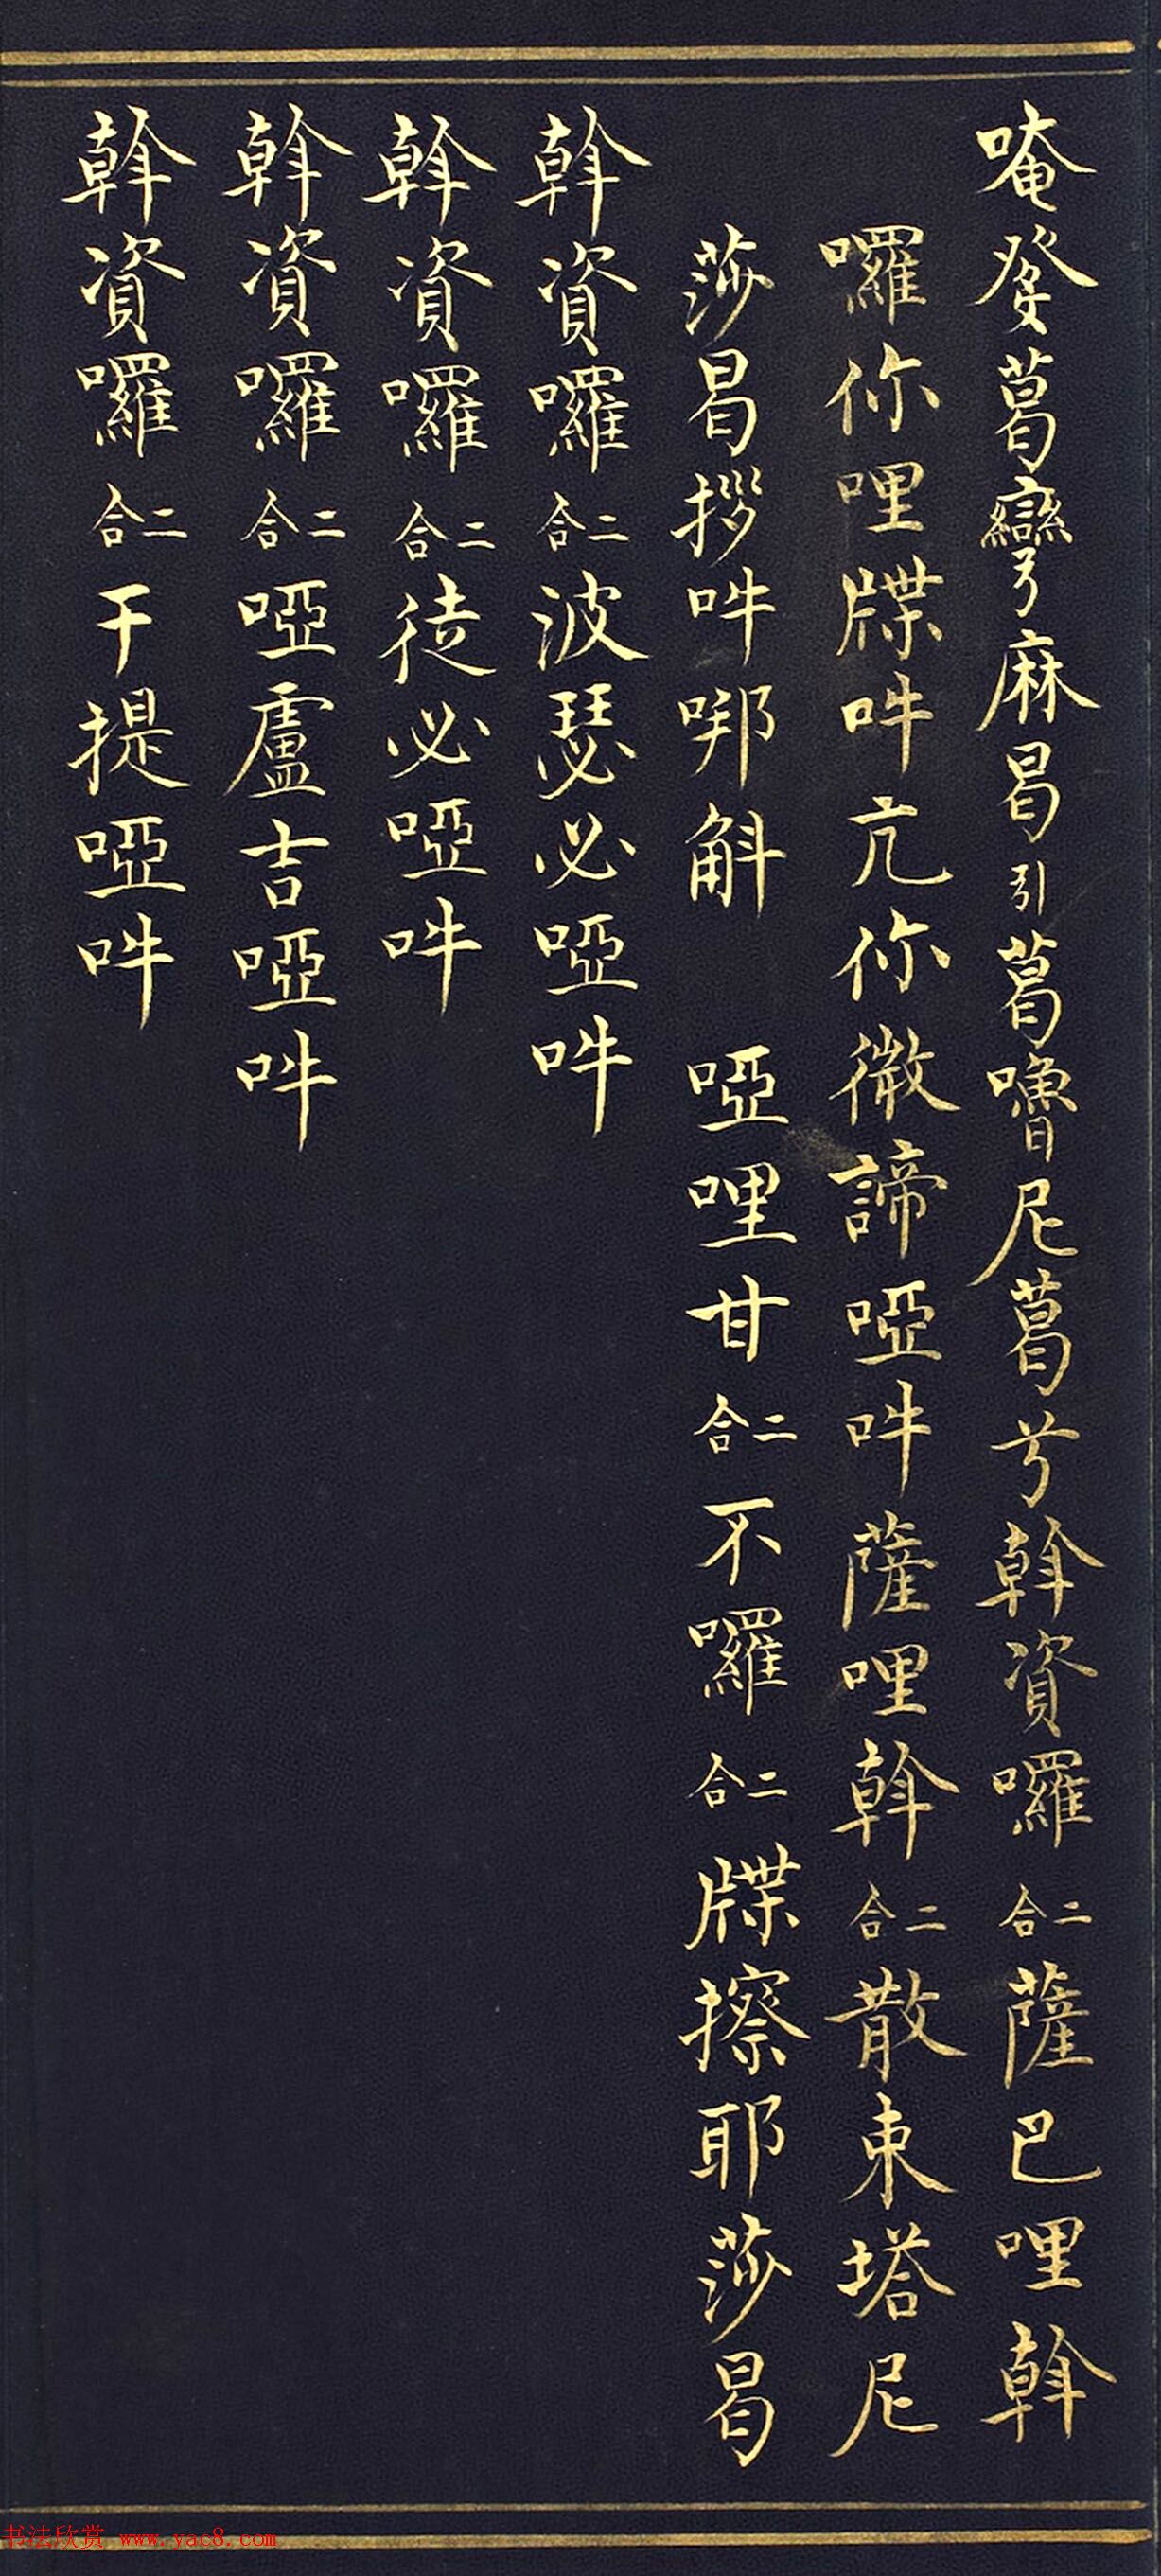 唵癹葛彎麻曷引葛嚕尼葛兮斡資囉二合薩巴哩斡
囉你哩牒吽亢你微諦啞吽薩哩斡二合散東塔尼
莎曷拶吽哪斛 啞哩甘二合不囉二合牒擦耶莎曷
斡資囉二合波瑟必啞吽
斡資囉二合徒必啞吽
斡資囉二合啞盧吉啞吽
斡資囉二合干提啞吽
书法欣赏 www.yac8.com